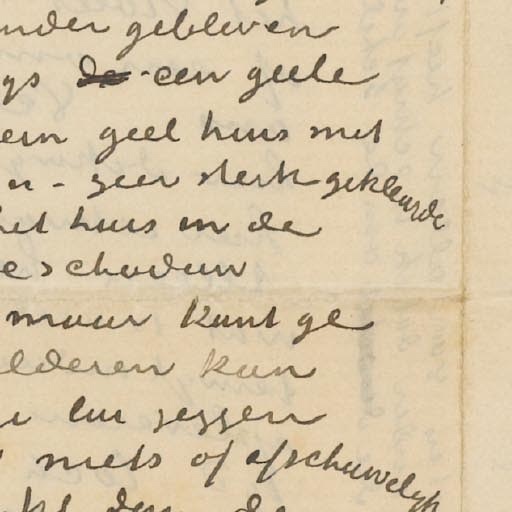 nder gebleven
gs de een geele
ein geel huis met
n - zeer sterk gekleurde
het huis in de
eschaduw
maar kunt ge
lderen kan
en zeggen
niets of afschuwelijk